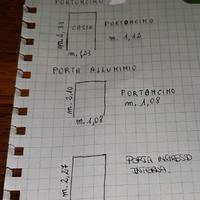 PORTONCINO
m. 2,33
CASSA
PORTONCINO
m. 1,12
m. 1,23
PORTA ALLUMINIO
m. 2,10
PORTONCINO
m. 1,08
m. 1,08
m. 2,27
PORTA INGRESSO
INTERNA